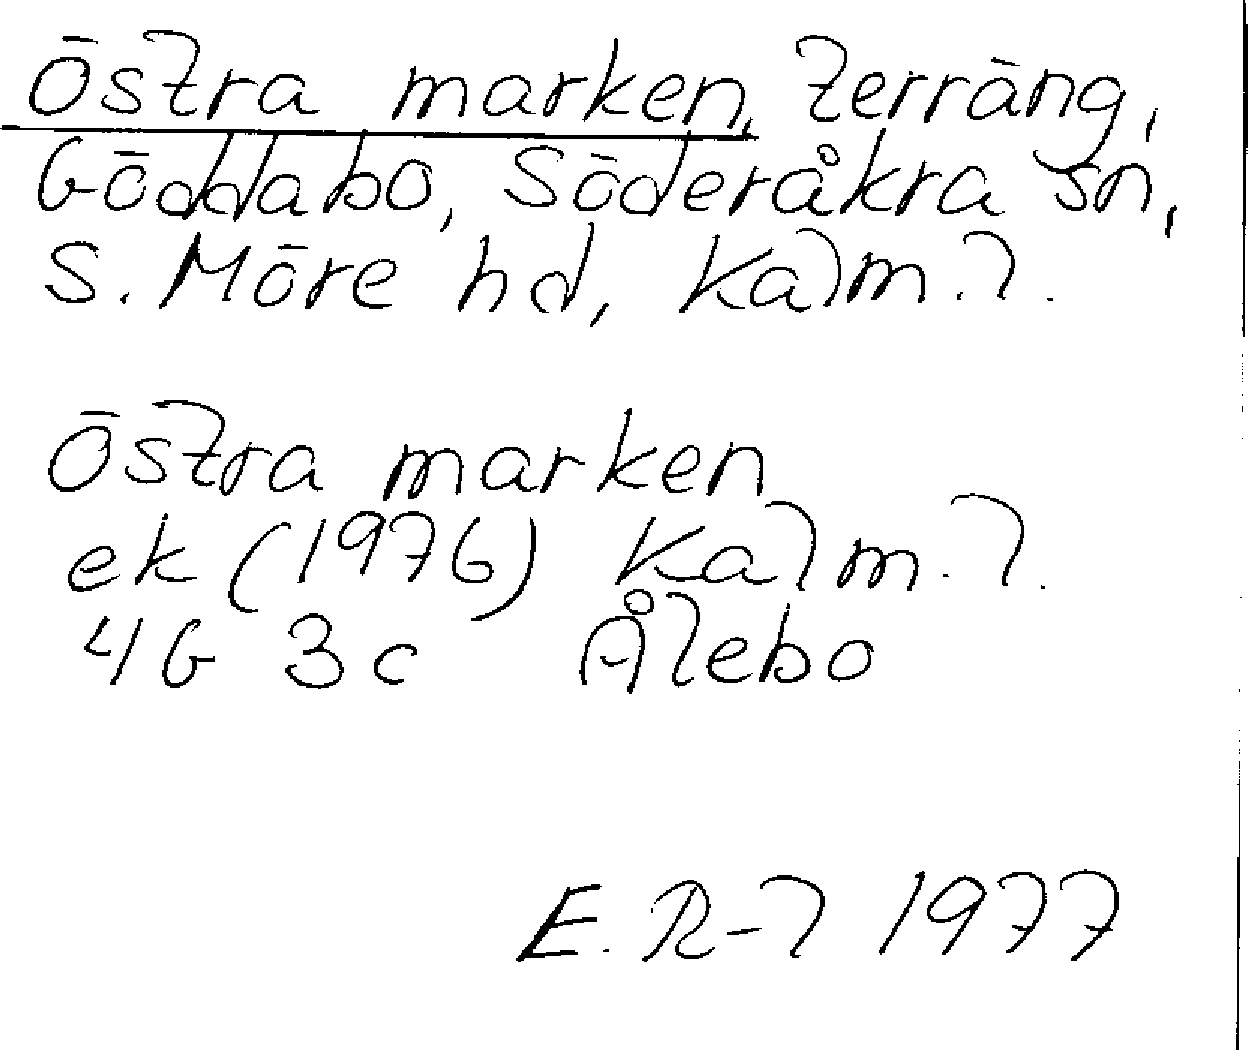 Östra marken, Terräng,
Göddabo, Söderåkra sn,
S. Möre hd, Kalm. l.
Östra marken
ek (1976) Kalm. l.
4G 3c Ålebo
E. R-l 1977